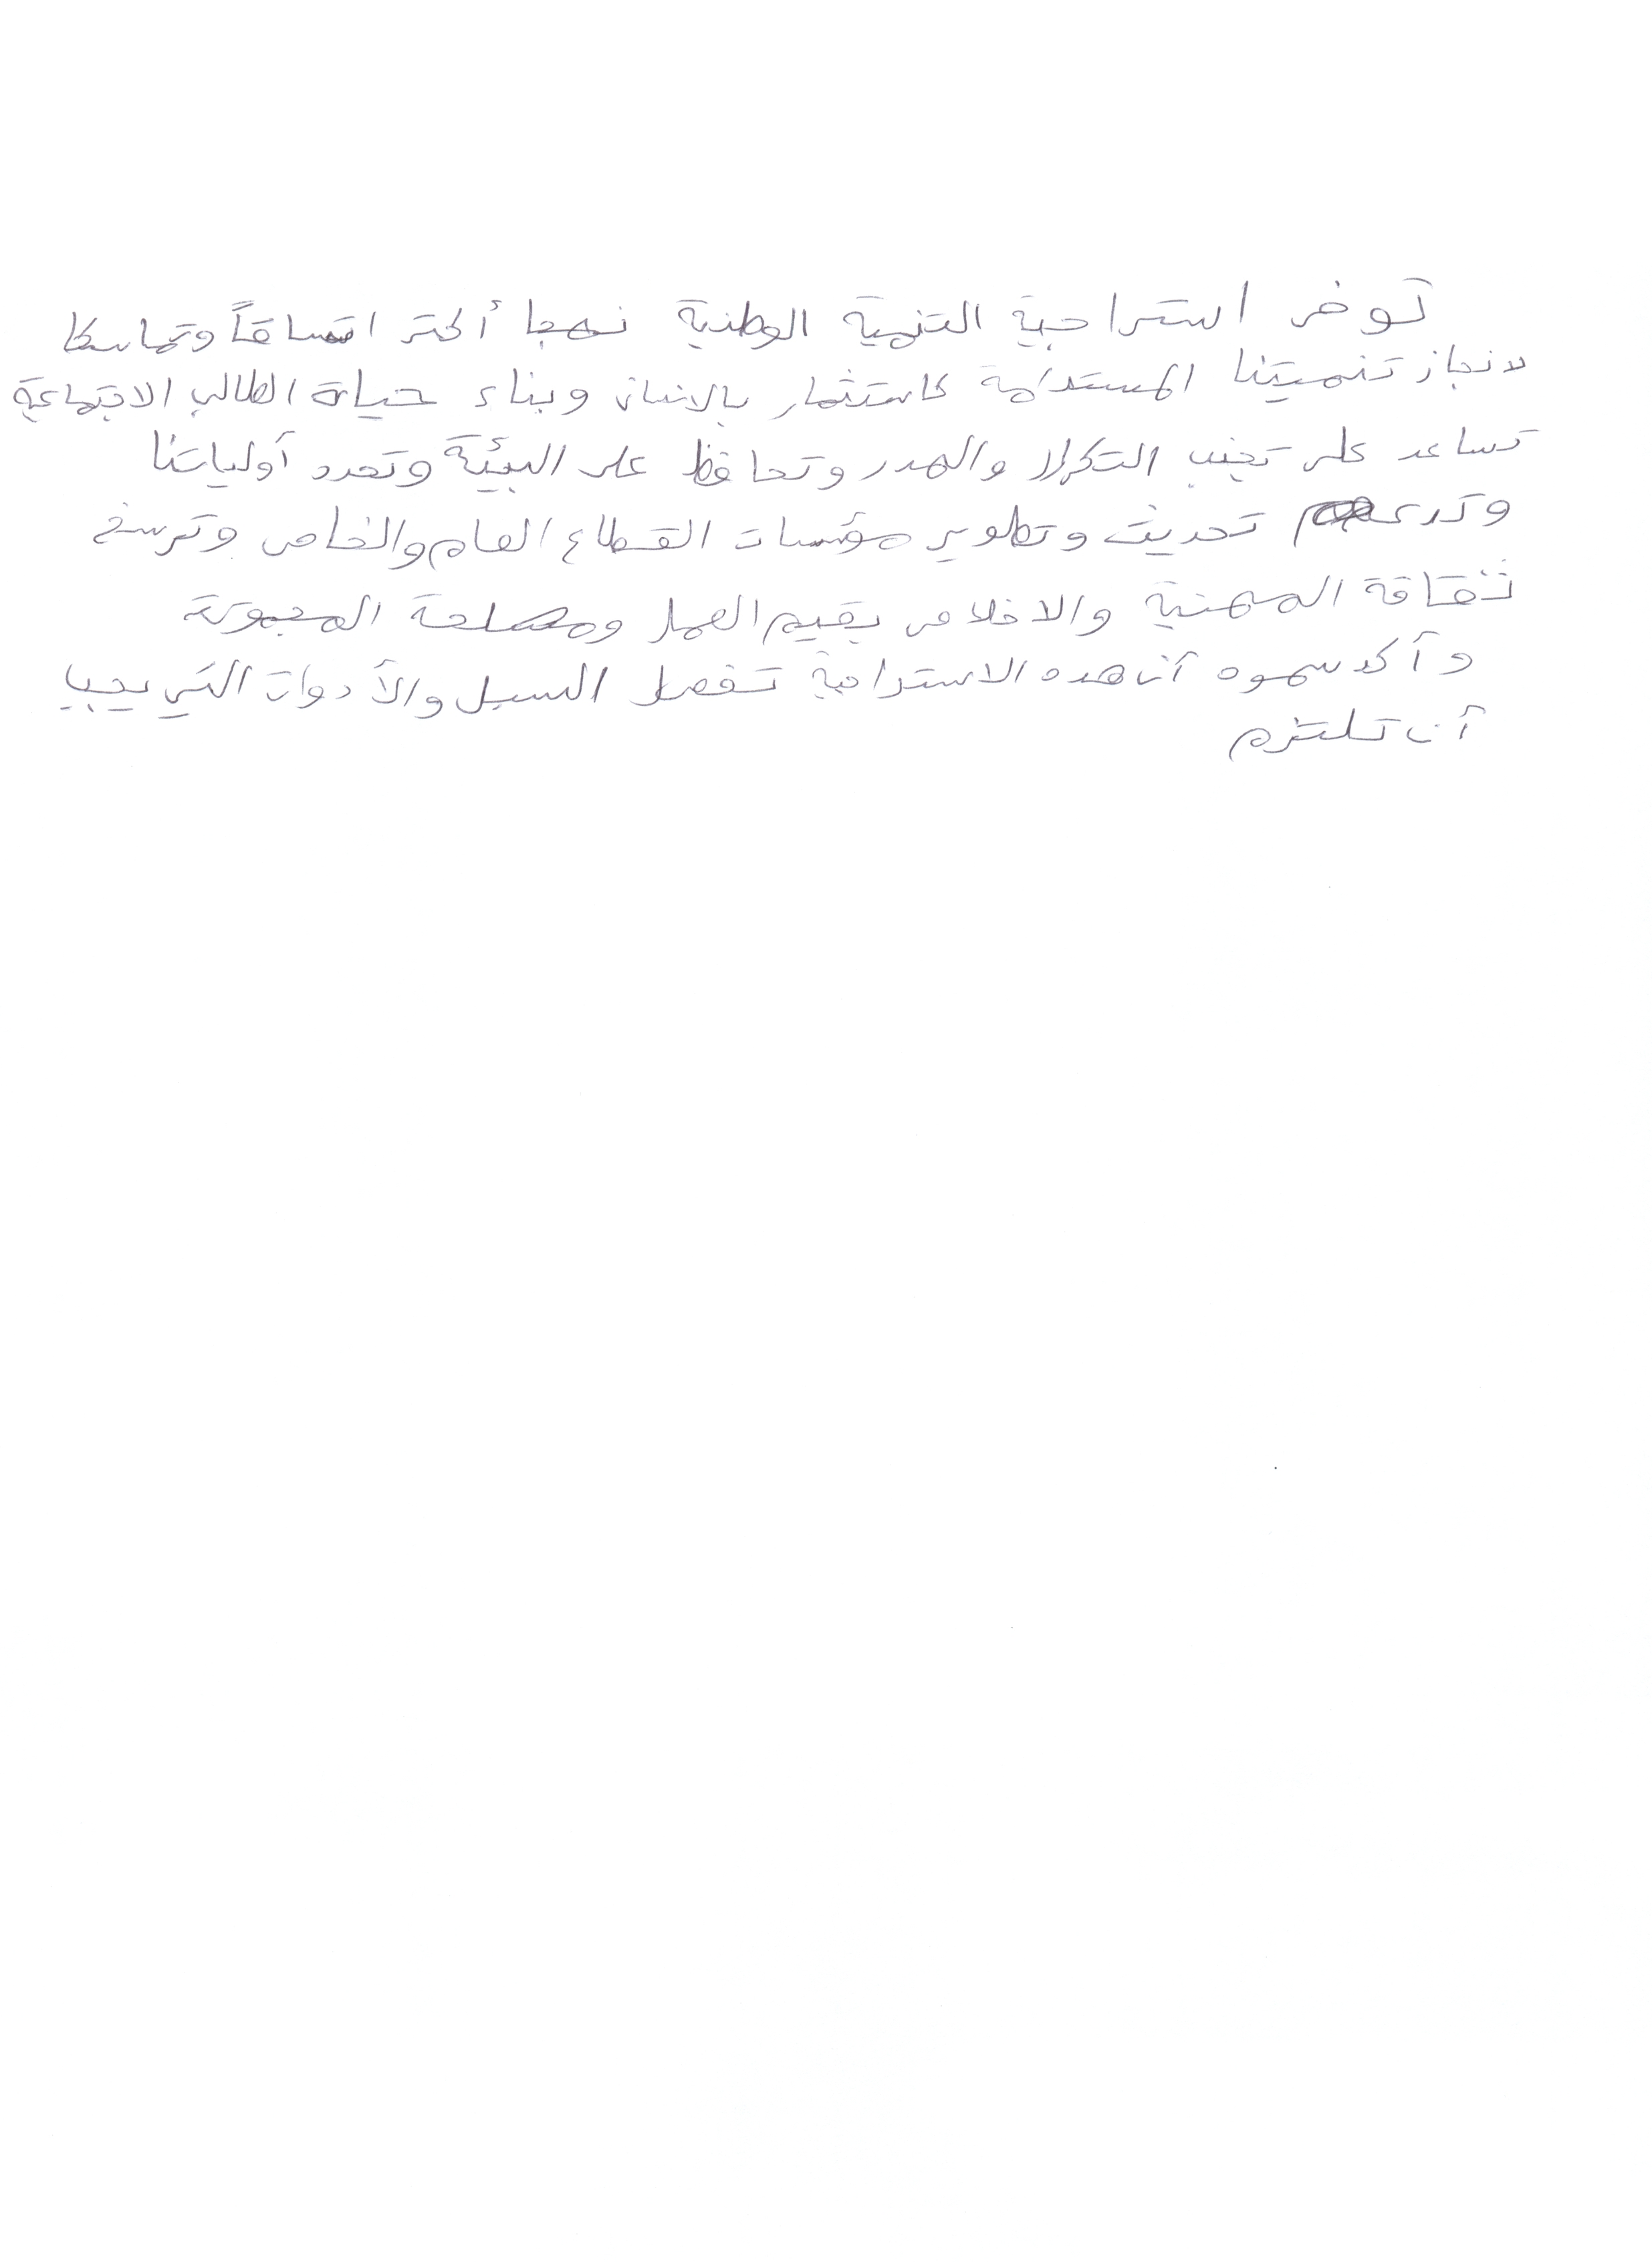 توفر استراجية التنمية الوطنية نهجا أكثر اتساقاً وتماسكا
لانجاز تنميتنا المستدامة كاستثمار بالانسان وبناء حياة الطالب الاجتماعية
تساعد على تجنب التكرار والهدر وتحافظ على البيئة وتحدد أولياتنا
وتدعم تحديث وتطوير مؤسسات القطاع العام والخاص وترسخ
ثقافة المهنية والاخلاص بقيم العمل ومصلحة المجموعة
وأكد سموه أن هده الاستراجية تفصل السبل والأدوات التي يجب
أن تلتزم